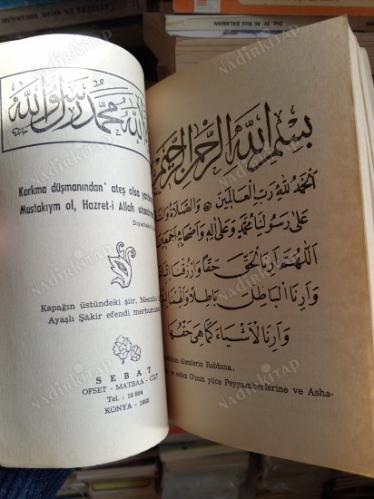 محمد رسول الله
Korkma düşmanından' ateş olsa
Mustakıym ol, Hazret-i Allah
Kapağın üstündeki şiir,
Ayaşlı Şâkir efendi
SEBAT
OFSET - MATBAA - CİLT
KONYA -
بسم الله الرحمن الرحيم
الحمد لله رب العالمين والصلاة
على رسولنا محمد وعلى اله واصحابه اجمعين
اللهم ارنا الحق حقا وارزقنا
وارنا الباطل باطلا
وارنا الاشياء كما هي
Rabbına.
ve O'nun yüce Peygamberlerine ve Asha-
NADİRKİTAP